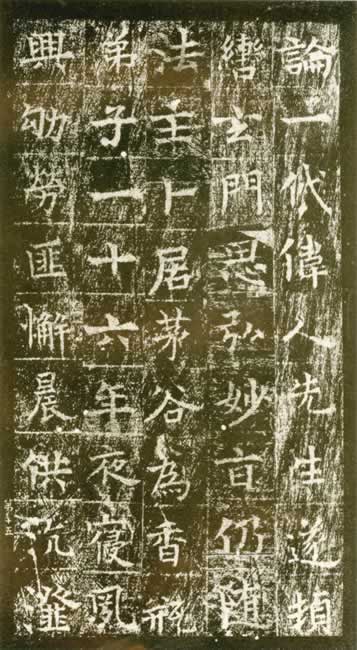 論一代偉人先生遂頻
轡玄門思弘妙旨仍隨
法主卜居茅谷為香瓶
弟子一十六年夜寢夙
興劬勞匪懈晨供沆瀣
第十五